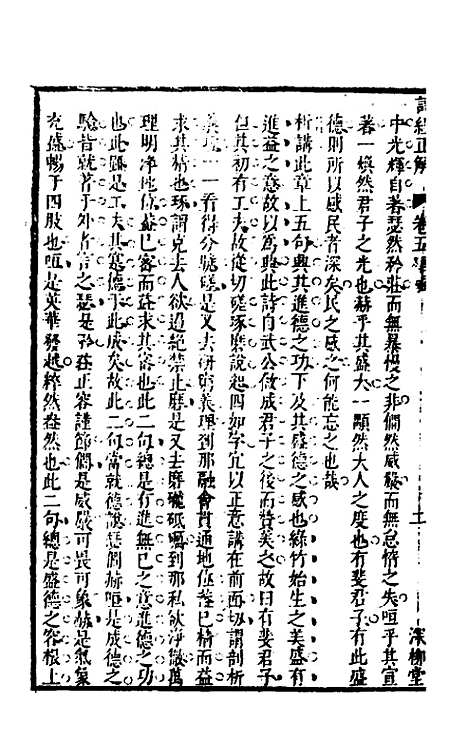 詩經正解 卷五 深柳堂
中光輝自著瑟然矜莊而無暴慢之非僩然威嚴而無怠惰之失咺乎其宣
著一煥然君子之光也赫乎其盛大一顯然大人之度也有斐君子有此盛
德則所以感民者深矣民之感之何能忘之也哉
析講此章上五句興其進德之功下及其盛德之感也綠竹始生之美盛有
進益之意故以為興此詩肖武公做成君子之後而贊美之故曰有斐君子
但其初有工夫故從切磋琢磨說起四如字宜以正意講在前面切謂剖析
義理一一看得分號磋是又去研窮義理到那融會貫通地位葢已精而益
求其精也琢謂克去人欲過絕禁止磨是又去磨礲砥礪到那私欲淨盡萬
理明淨地位葢已密而益求其密也此二句總是有進無已之意進德之功
也此雖是工夫其寔德于此成矣故此二句當就德說瑟僩赫咺是成德之
驗皆就著于外者言之瑟是矜莊正容謹節僩是威嚴可畏可象赫是氣象
充盛暢于四肢也咺是英華發越粹然盎然也此二句總是盛德之容根上